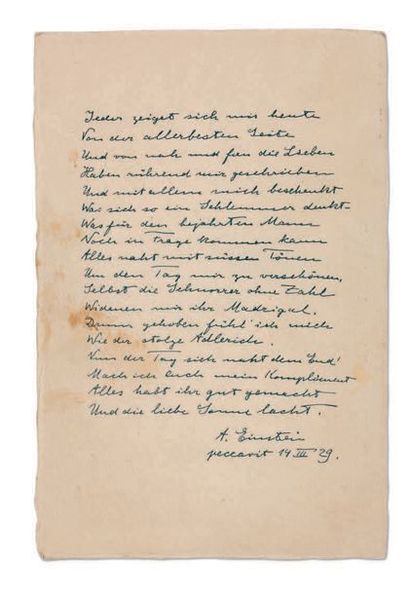 Jeder zeiget sich mir heute
Von der allerbesten Seite
Und von nah und fern die Lieben
Haben rührend mir geschrieben
Und mit allem mich beschenkt
Was sich so ein Schlemmer denkt
Was für den bejahrten Mann
Noch in Frage kommen kann
Alles naht mit süssen Tönen
Um den Tag mir zu verschönen,
Selbst die Schnorrer ohne Zahl
Widmen mir ihr Madrigal.
Drum gehoben fühl' ich mich
Wie der stolze Adlerich.
Nun der Tag sich naht dem End'
Mach ich Euch mein Kompliment
Alles habt ihr gut gemacht
Und die liebe Sonne lacht.
A. Einstein
peccavit 14 III 29.